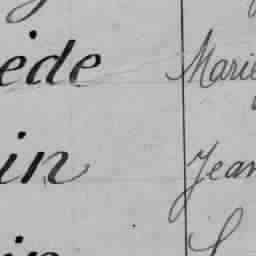 ède Marie
in Jean
in